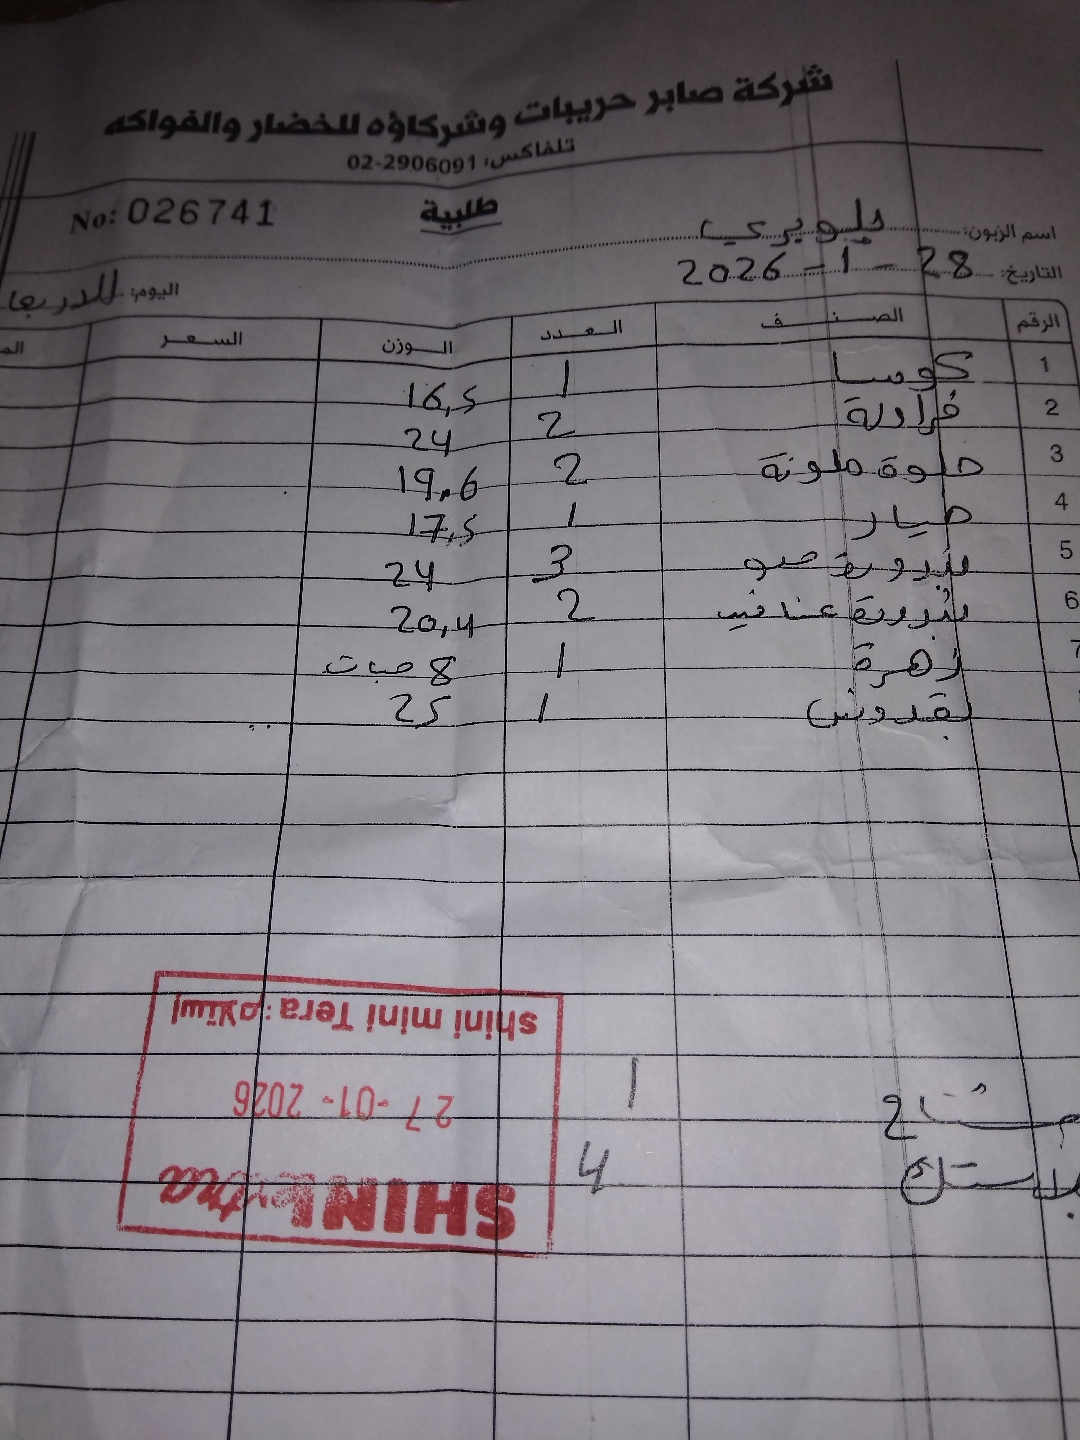 شركة صابر حريبات وشركاؤه للخضار والفواكه
تلفاكس: 02-2906091
طلبية
No: 026741
اسم الزبون:
التاريخ: 28 - 1 - 2026
اليوم:
الرقم الصنف العدد الوزن السعر
1 كوسا 1 16,5
2 فراولة 2 24
3 حلوة ملونة 2 19.6
4 خيار 1 17,5
5 بندورة 3 24
6 بندورة 2 20,4
7 زهرة 1 8 حبات
بقدونس 1 25
shini mini Tera :إستلام
27-01-2026
SHINI extra
1
بلاستك 4